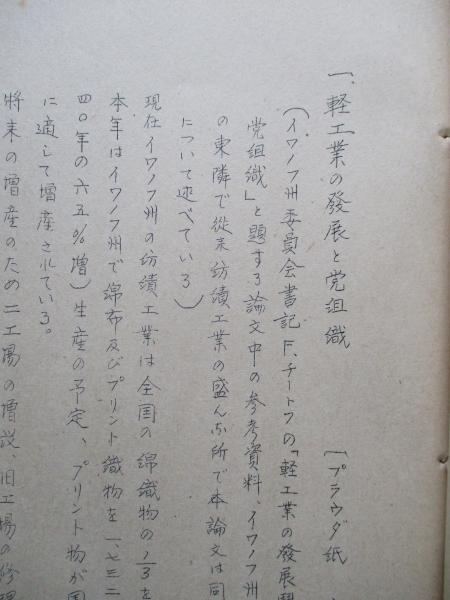 一、軽工業の發展と党組織　(プラウダ紙
(イワノフ州委員会書記 F.チートフの「軽工業の發展
党組織」と題する論文中の参考資料、イワノフ州
の東隣で従来紡績工業の盛んな所で本論文は同
について述べている)
現在イワノフ州の紡績工業は全国の綿織物の1/3を
本年はイワノフ州で綿布及びプリント織物を一、七三二
四〇年の六五%増)生産の予定、プリント物が国
に適して増産されている。
将来の増産のため二工場の増設、旧工場の修理